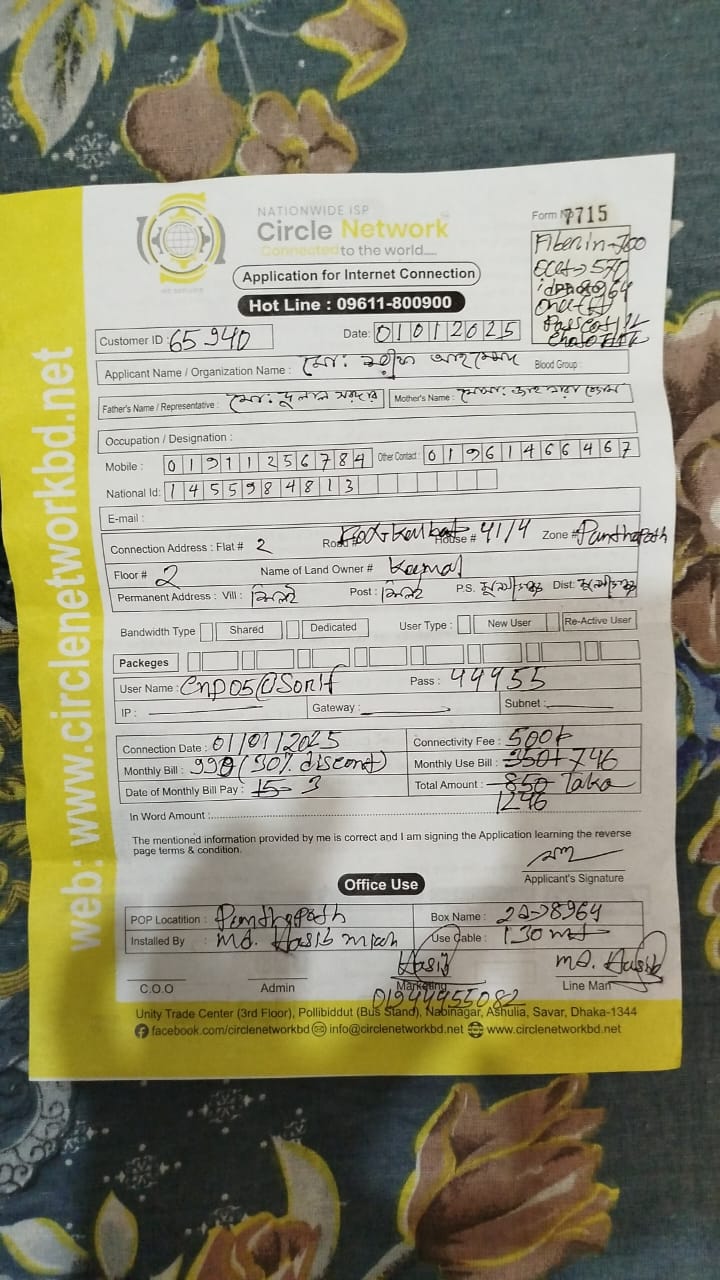 NATIONWIDE ISP
Circle Network
Connected to the world.....
Application for Internet Connection
Hot Line : 09611-800900
Form No 7715
Fiber in-700
out→570
Customer ID : 65940
Date: 01012025
Applicant Name / Organization Name : মোঃ শরীফ আহম্মেদ
Blood Group :
Father's Name / Representative : মোঃ দুলাল সরদার
Mother's Name :
Occupation / Designation :
Mobile : 01911256784
Other Contact : 01961466467
National Id: 1455984813
E-mail :
Connection Address : Flat # 2 Road # House # 41/4 Zone # Panthapath
Floor # 2 Name of Land Owner # Kamal
Permanent Address : Vill : Post : P.S. Dist:
Bandwidth Type Shared Dedicated User Type : New User Re-Active User
Packeges
User Name : CnD05@Sorif Pass : 44955
IP : Gateway : Subnet :
Connection Date : 01/01/2025 Connectivity Fee : 500৳
Monthly Bill : 990 (30% discont) Monthly Use Bill : 350+ 746
Date of Monthly Bill Pay : 15- 3 Total Amount : 850 Taka
1246
In Word Amount :
The mentioned information provided by me is correct and I am signing the Application learning the reverse
page terms & condition.
Applicant's Signature
Office Use
POP Locatition : Panthapath Box Name : 2D-8964
Installed By : Md. Hasib miah Use Cable : 130 mt
Hasib Md. Hasib
C.O.O Admin Marketing Line Man
01944455082
Unity Trade Center (3rd Floor), Pollibiddut (Bus Stand), Nabinagar, Ashulia, Savar, Dhaka-1344
facebook.com/circlenetworkbd info@circlenetworkbd.net www.circlenetworkbd.net
web: www.circlenetworkbd.net